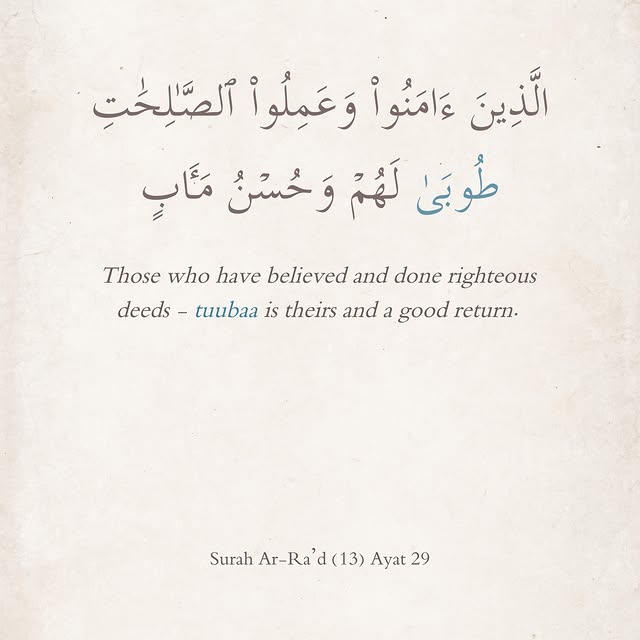 الَّذِينَ ءَامَنُوا۟ وَعَمِلُوا۟ ٱلصَّـٰلِحَـٰتِ
طُوبَىٰ لَهُمْ وَحُسْنُ مَـَٔابٍ
Those who have believed and done righteous
deeds – tuubaa is theirs and a good return.
Surah Ar-Ra’d (13) Ayat 29